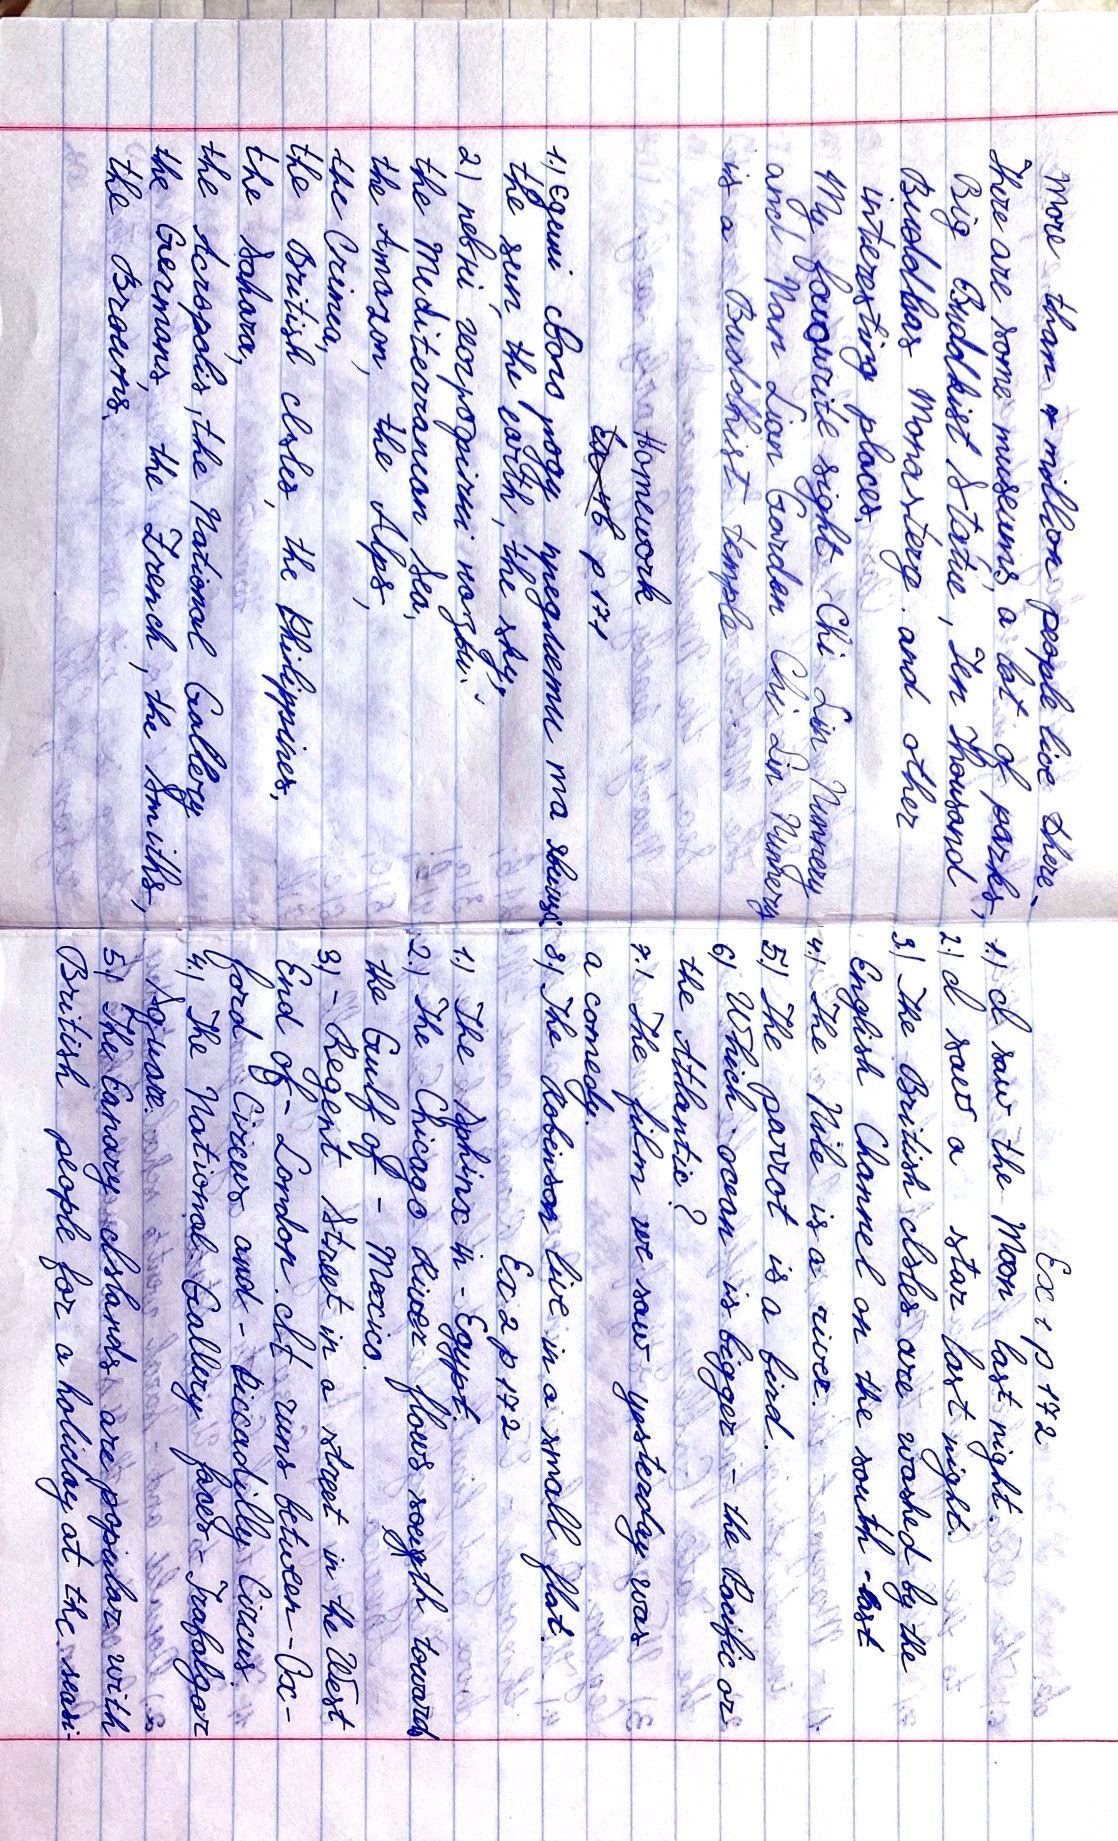 More than million people live there.
There are some museums, a lot of parks,
Big Buddhist Statue, Ten Thousand
Buddhas Monastery and other
interesting places.
My favourite sight Chi Lin Nunnery
and Nan Lian Garden Chi Lin Nunnery
is a Budohist temple
Homework
p 171
1.) Єдині свого роду предмети та явища
the sun, the earth, the sky,
2) певні географічні назви:
the Mediterranean Sea,
the Amazon, the Alps,
the Crimea,
the British Isles, the Philippines,
the Sahara,
the Acropolis, the National Gallery
the Germans, the French, the Smiths,
the Browns.
Ex 1 p 172
1.) I saw the Moon last night.
2.) I saw a star last night.
3) The British Isles are washed by the
English Channel on the south-east
4.) The Nile is a river.
5.) The parrot is a bird.
6) Which ocean is bigger - the Pacific or
the Atlantic?
7.) The film we saw yesterday was
a comedy.
8) The Robinson live in a small flat.
Ex 2 p 172
1.) The Sphinx in - Egypt.
2.) The Chicago River flows sougth towards
the Gulf of - Mexico.
3) - Regent Street in a street in the West
End of - London. It runs between - Ox-
ford Circus and - Piccadilly Circus.
4.) The National Gallery faces - Trafalgar
Square.
5.) The Canary Islands are popular with
British people for a holiday at the seasi-